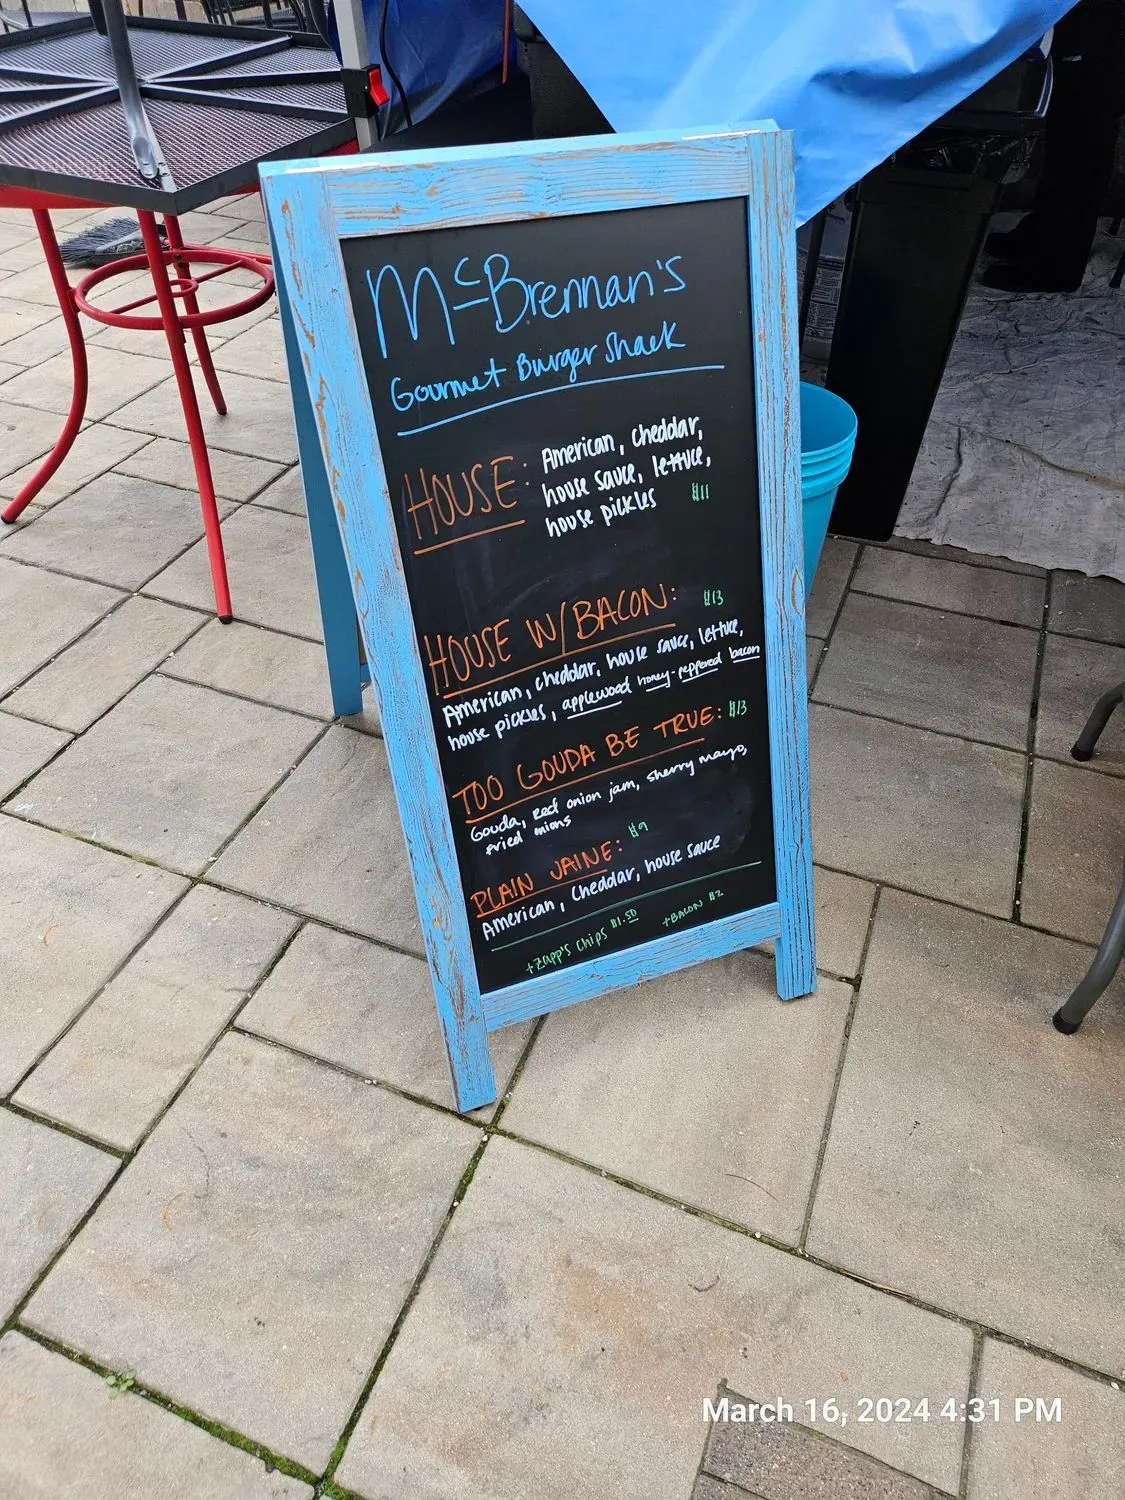 McBrennan's
Gourmet Burger Shack
HOUSE: American, cheddar,
house sauce, lettuce,
house pickles $11
HOUSE W/BACON: $13
American, cheddar, house sauce, lettuce,
house pickles, applewood honey-peppered bacon
TOO GOUDA BE TRUE: $13
Gouda, red onion jam, sherry mayo,
fried onions
PLAIN JAINE: $9
American, Cheddar, house sauce
+Zapp's Chips $1.50 +BACON $2
March 16, 2024 4:31 PM